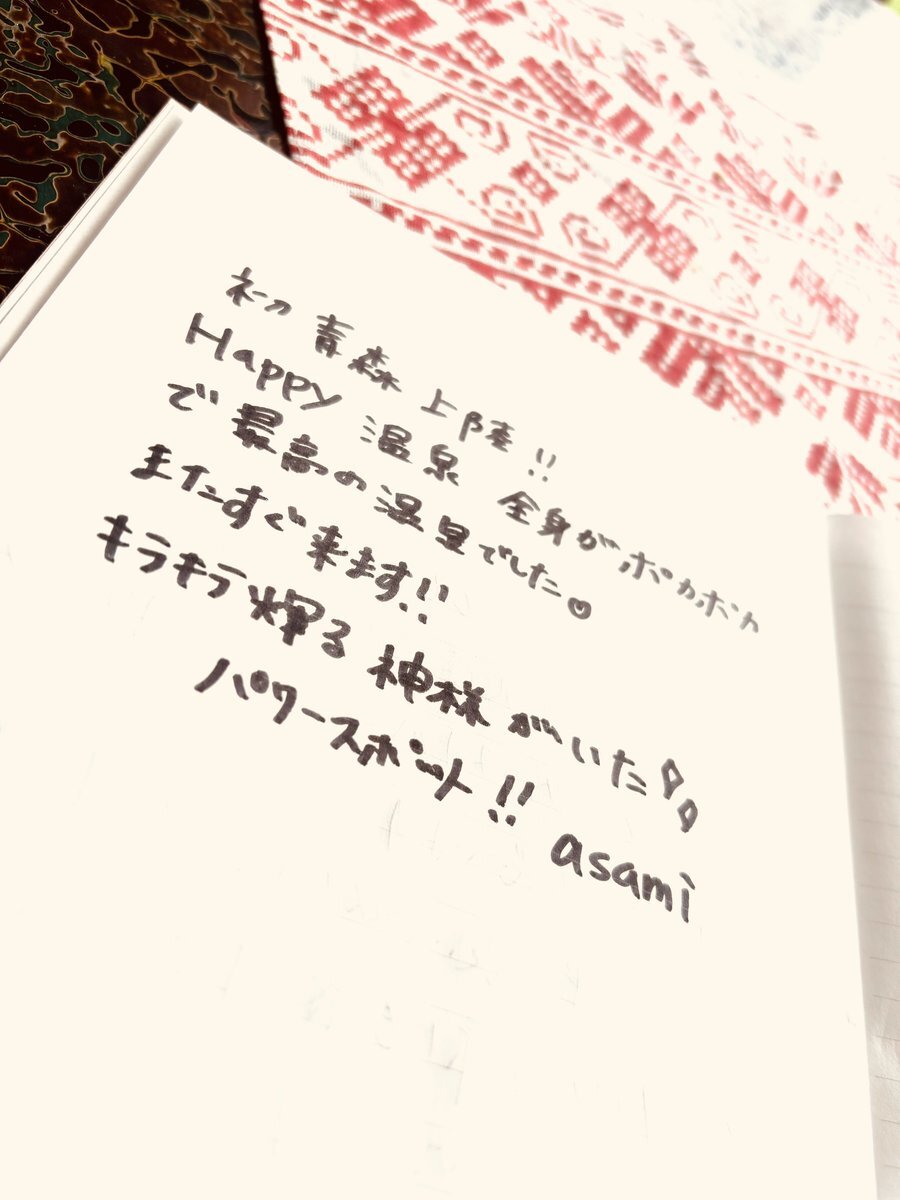 初 青森 上陸!!
Happy 温泉 全身がポカポカ
で 最高の 温里でした♡
またすぐ 来ます!!
キラキラ 輝る 神様 がいた!!
パワースポット!! asami